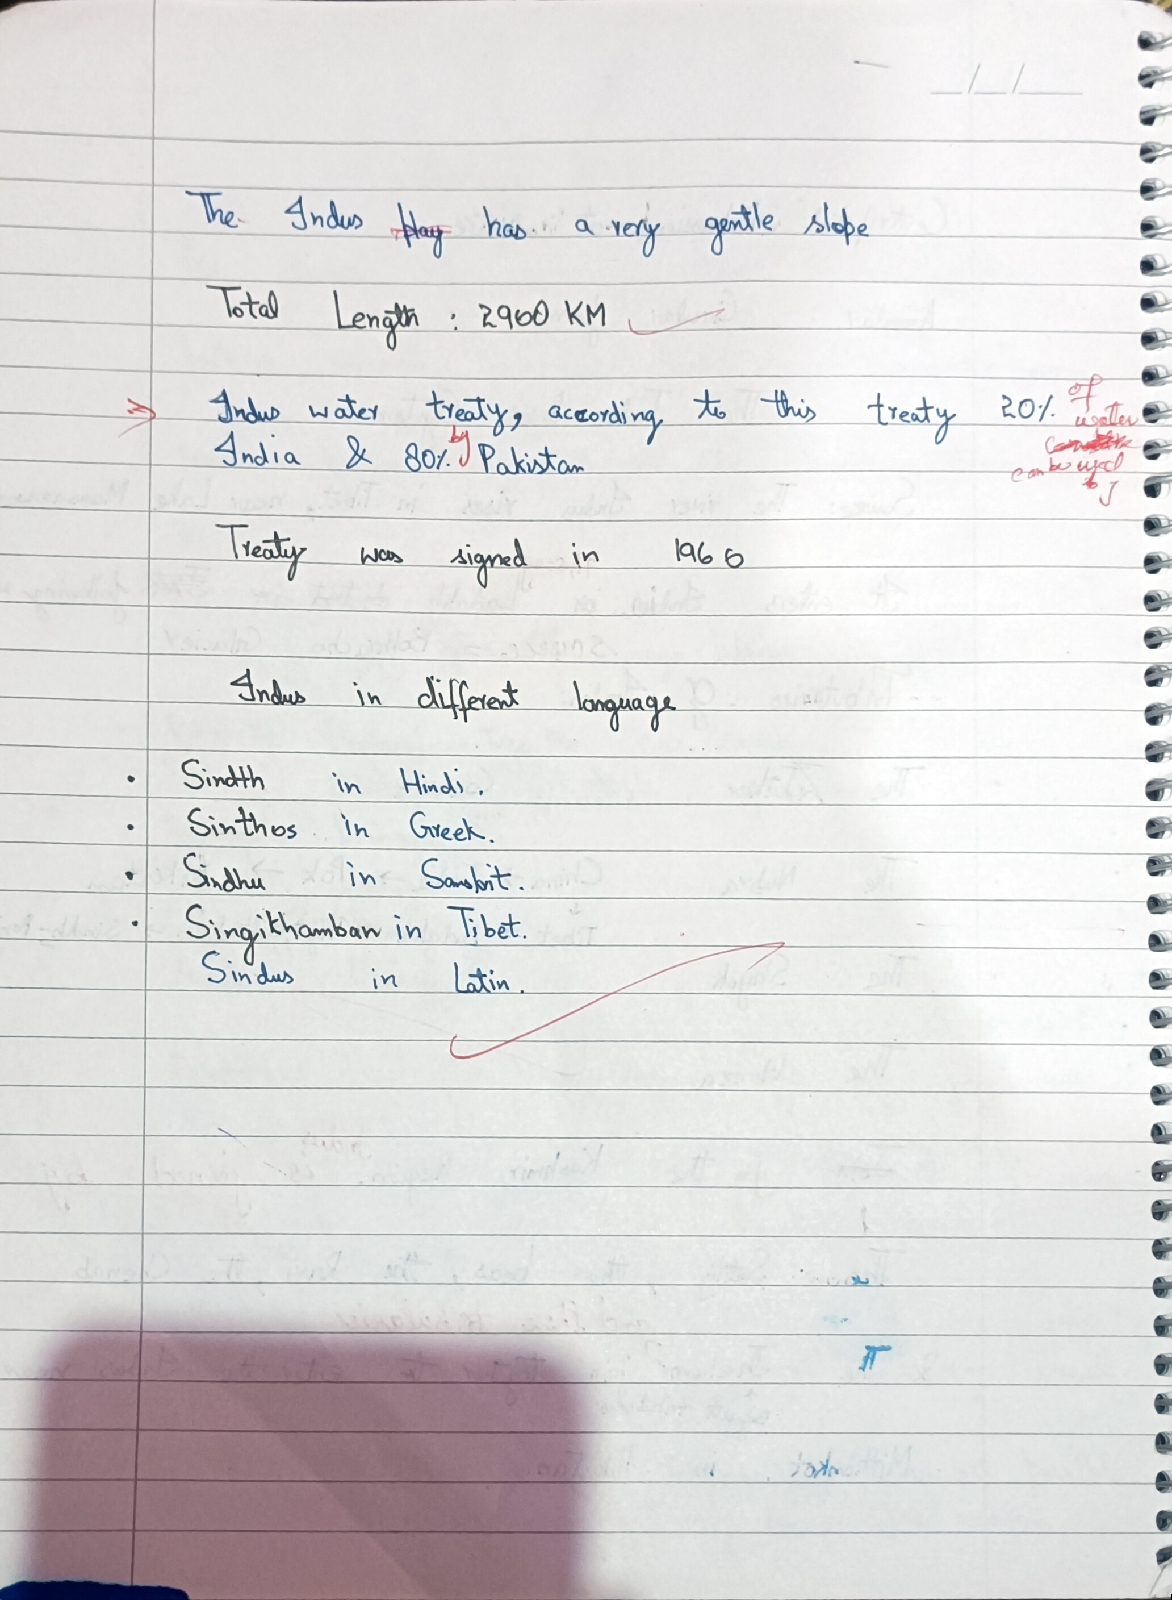 The Indus has a very gentle slope
Total Length : 2960 KM
⇒ Indus water treaty, according to this treaty 20% of water can be used by
India & 80% by Pakistan
Treaty was signed in 1960
Indus in different language
• Sindth in Hindi.
• Sinthos in Greek.
• Sindhu in Sanskrit.
• Singikhamban in Tibet.
Sindus in Latin.